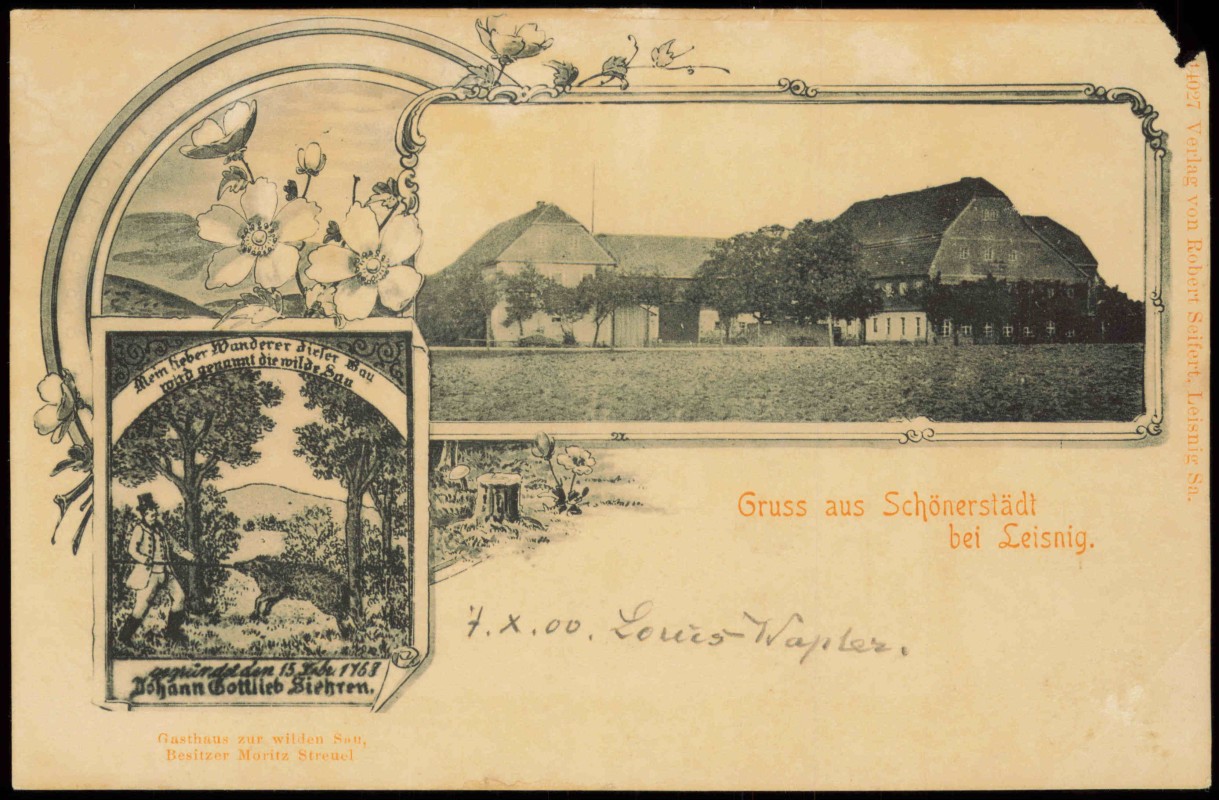 Mein lieber Wanderer dieser Bau
wird genannt die wilde Sau
gegründet den 15 Febr 1768
Johann Gottlieb Siehren.
Gasthaus zur wilden Sau,
Besitzer Moritz Streuel
Gruss aus Schönerstädt
bei Leisnig.
7.X.00. Louis Wapler.
4027 Verlag von Robert Seifert, Leisnig Sa.